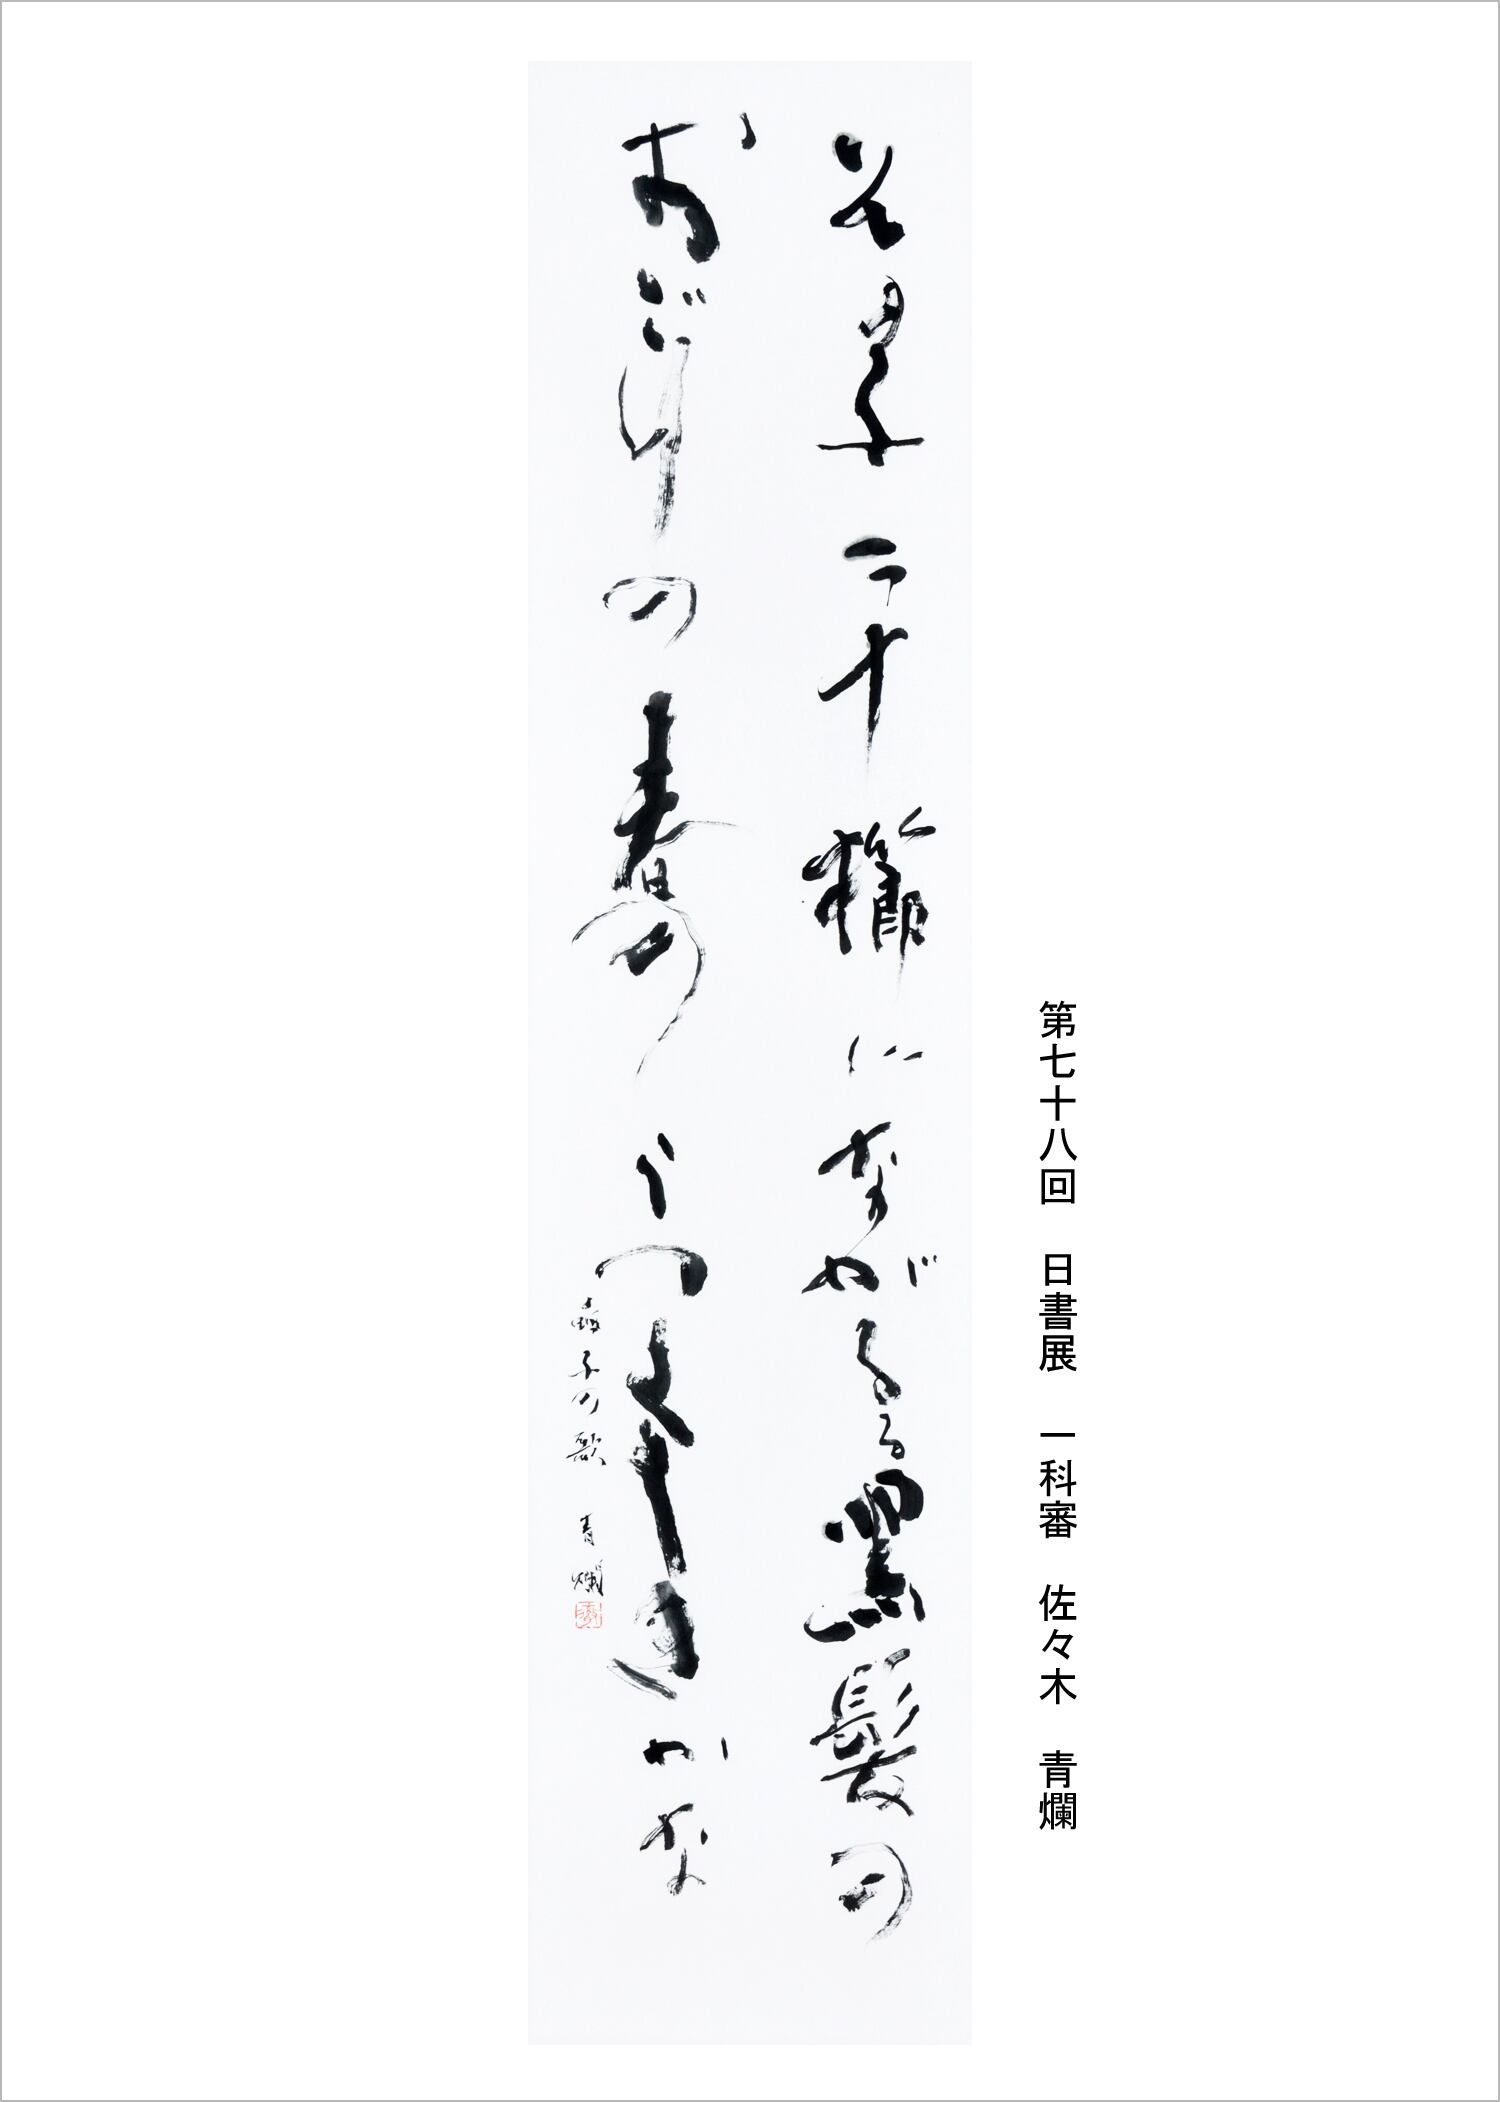 第七十八回 日書展 一科審 佐々木 青爛
その子二十櫛にながるる黒髪の
おごりの春のうつくしきかな
晶子の歌 青爛